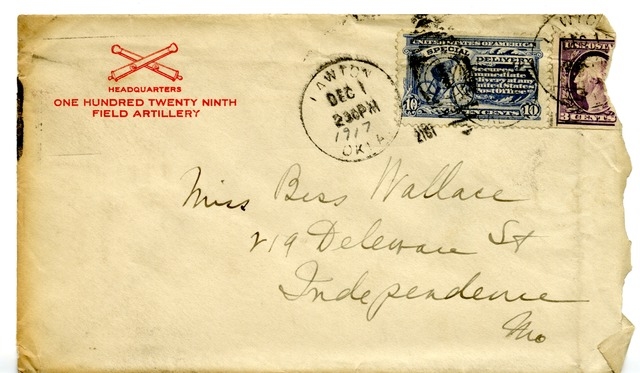 HEADQUARTERS
ONE HUNDRED TWENTY NINTH
FIELD ARTILLERY
LAWTON
DEC 1
230PM
1917
OKLA
UNITED STATES OF AMERICA
SPECIAL DELIVERY
Secures
immediate
delivery at any
United States
Post Office
10 TEN CENTS 10
LAWTON
U.S. POSTA
3 CENTS
Miss Bess Wallace
219 Deleware St
Independence
Mo